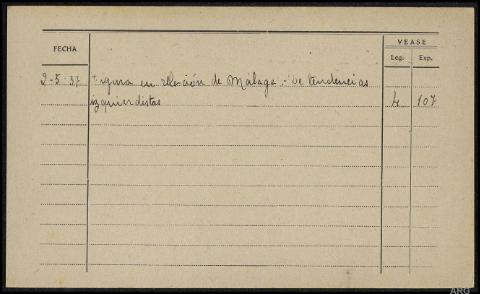 FECHA
VEASE
Leg. Exp.
2-5-37 Figura en relación de Málaga.- De tendencias
izquierdistas
4 107
ARG